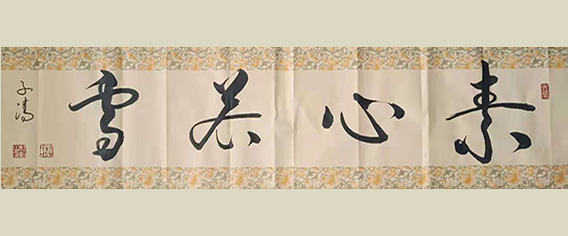 素心若雪
子